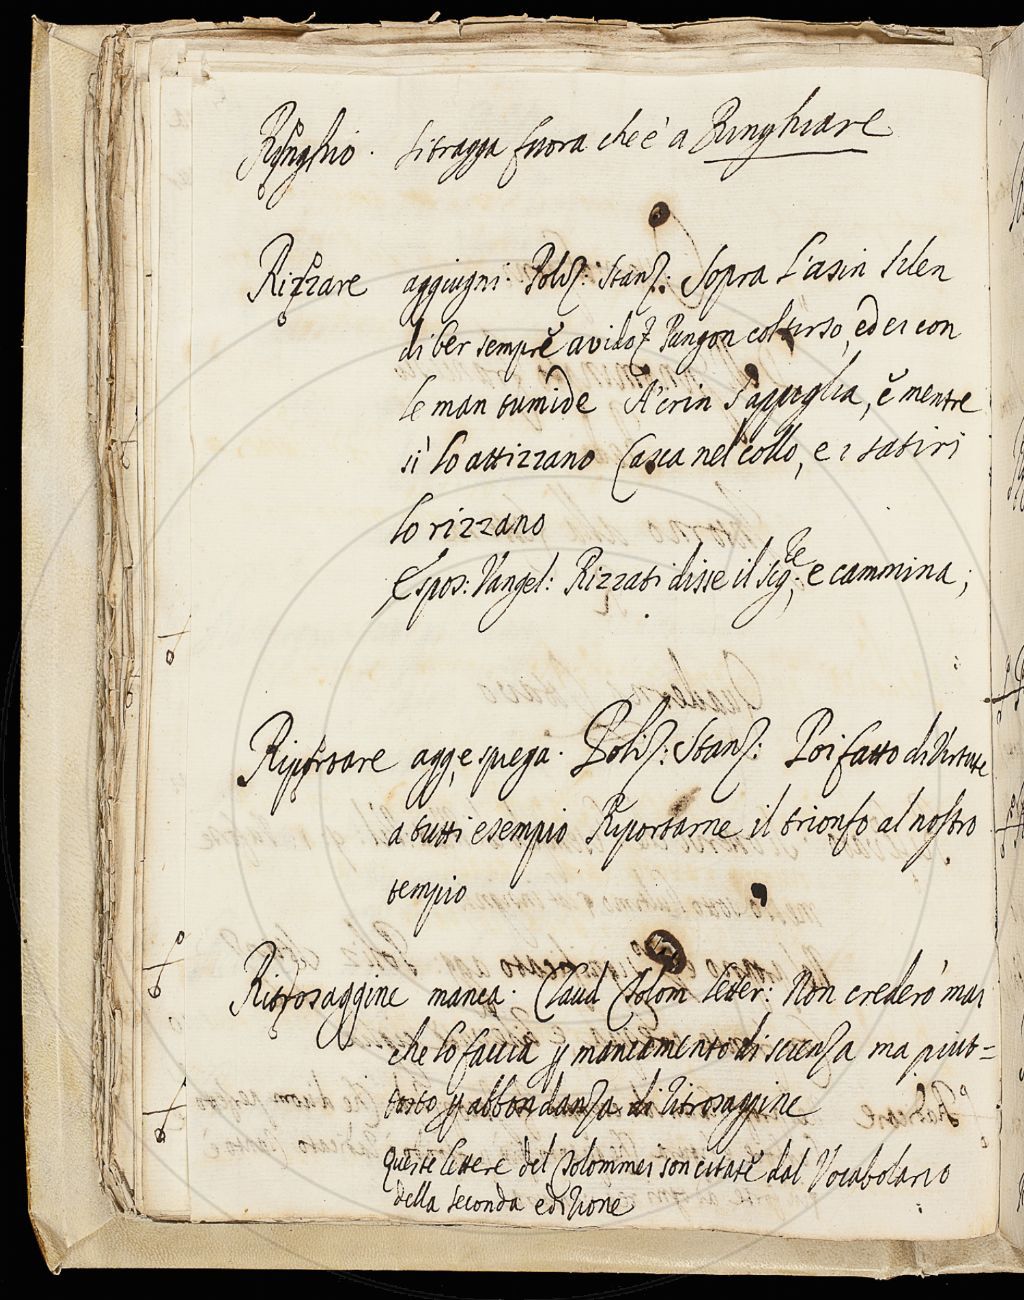 Ringhio. si tragga fuora che è a Ringhiare
Rizzare aggiugni. Poliz: Stanz: Sopra l'asin Silen
di ber sempre avido Pangon col tirso, ed ei con
le man tumide A' crin s'appiglia, e mentre
sì lo attizzano Casca nel collo, e i satiri
lo rizzano
Espos: Vangel: Rizzati disse il Sig.re, e cammina;
Riportare agg, e spiega. Poliz: Stanz: Poi fatto di Virtute
a tutti esempio Riportarne il trionfo al nostro
tempio
Ritrosaggine manca. Claud Tolom letter: Non crederò mai
che lo faccia p mancamento di scienza ma piut=
tosto p abbondanza di ritrosaggine
queste lettere del Tolommei son citate dal Vocabolario
della seconda edizione